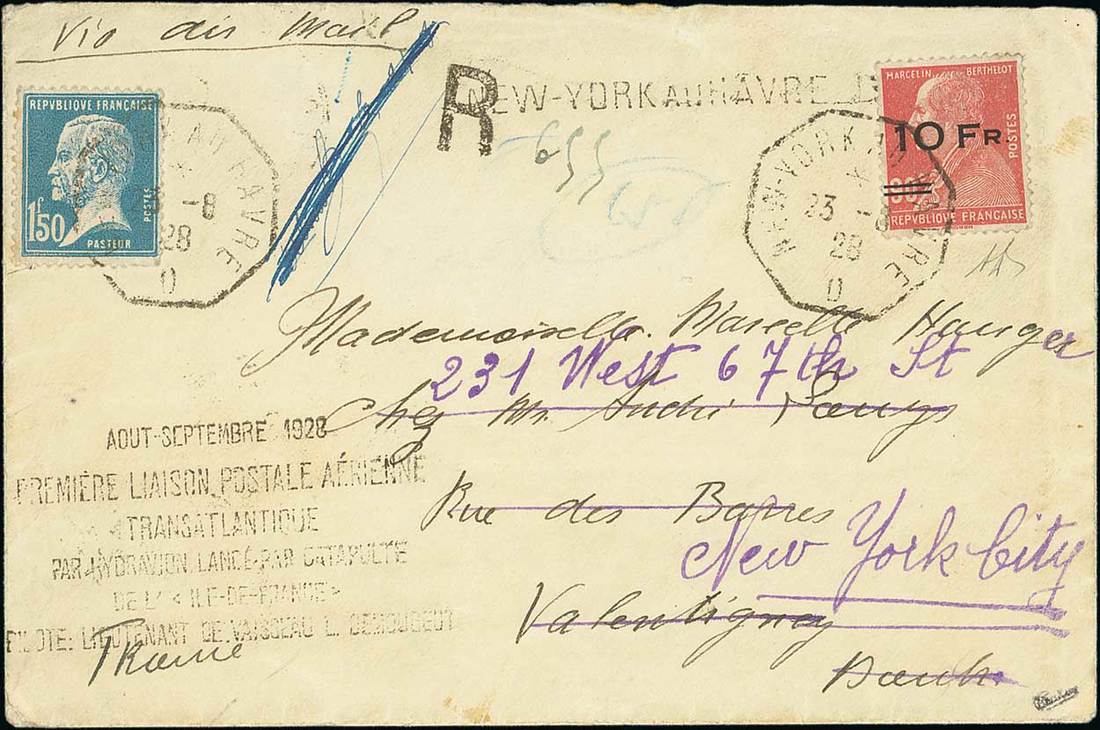 Via air Mail
REPVBLIQUE FRANÇAISE
1f50
POSTES
PASTEUR
NEW-YORK AU HAVRE
* -8
28
D
R NEW-YORK AU HÂVRE D
655
MARCELIN BERTHELOT
10 FR.
POSTES
REPVBLIQUE FRANÇAISE
NEW-YORK AU HAVRE
*
23 -8
28
D
Mademoiselle Marcelle Hauger
231 West 67th St
Chez Mr. André
Rue des Barres
New York City
Valentigney
Doubs
France
AOUT-SEPTEMBRE 1928
PREMIÈRE LIAISON POSTALE AÉRIENNE
TRANSATLANTIQUE
PAR HYDRAVION LANCÉ PAR CATAPULTE
DE L' «ILE-DE-FRANCE»
PILOTE: LIEUTENANT DE VAISSEAU L. DEMOUGEOT